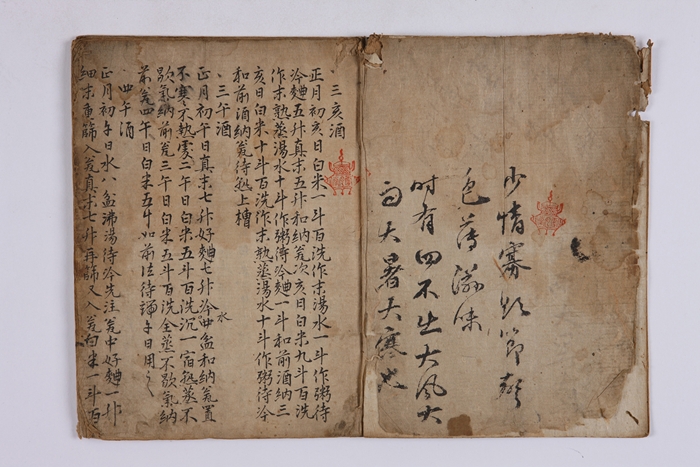 少情寡欲節聲
色薄滋味
時有四不出大風大
雨大暑大寒也
、三亥酒
正月初亥日白米一斗百洗作末湯水一斗作粥待
冷麯五升真末五升和納瓮次亥日白米九斗百洗
作末熟蒸湯水十斗作粥待冷麯一斗和前酒納三
亥日白米十斗百洗作末熟蒸湯水十斗作粥待冷
和前酒納瓮待熟上槽
、三午酒
正月初午日真末七升好麯七升冷水四盆和納瓮置
不寒不熱處二午日白米五斗百洗沉一宿熟蒸不
歇氣納前瓮三午日白米五斗百洗全蒸不歇氣納
前瓮四午日白米五斗如前法待端午日用之
、四午酒
正月初午日水八盆沸湯待冷先注瓮中好麯一升
細末重篩入瓮真末七升再篩又入瓮白米一斗百